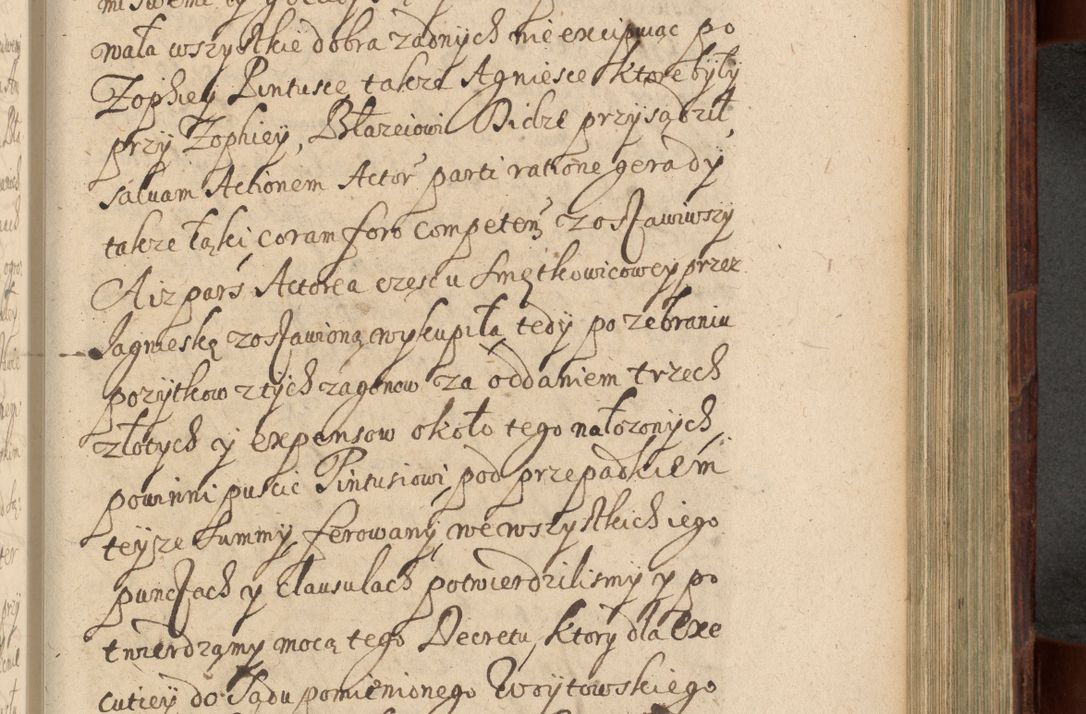 wała wszystkie dobra żadnych nie excipuiąc po
Zophiey Pintusce także Agniesce ktore były
przy Zophiey, Błazeiowi Didze przysądził,
salvam Actionem Actor parti ratione gerady
także łąki, coram foro competen zostawiwszy
A iz pars Actorea częscu Smętkowicowey przez
Jagnieskę zostawioną wykupiła tedy po zebraniu
pozytkow z tych zagonow za oddaniem trzech
złotych y expensow około tego nałozonych
powinni puscic Pintusiowi, pod przepadkiem
teyze Summy, ferowany we wszystkich iego
punctach y Clausulach potwierdzilismy y po
twierdzamy mocą tego Decretu, ktory dla Exe
cutiey do Sądu pomienionego Woytowskiego